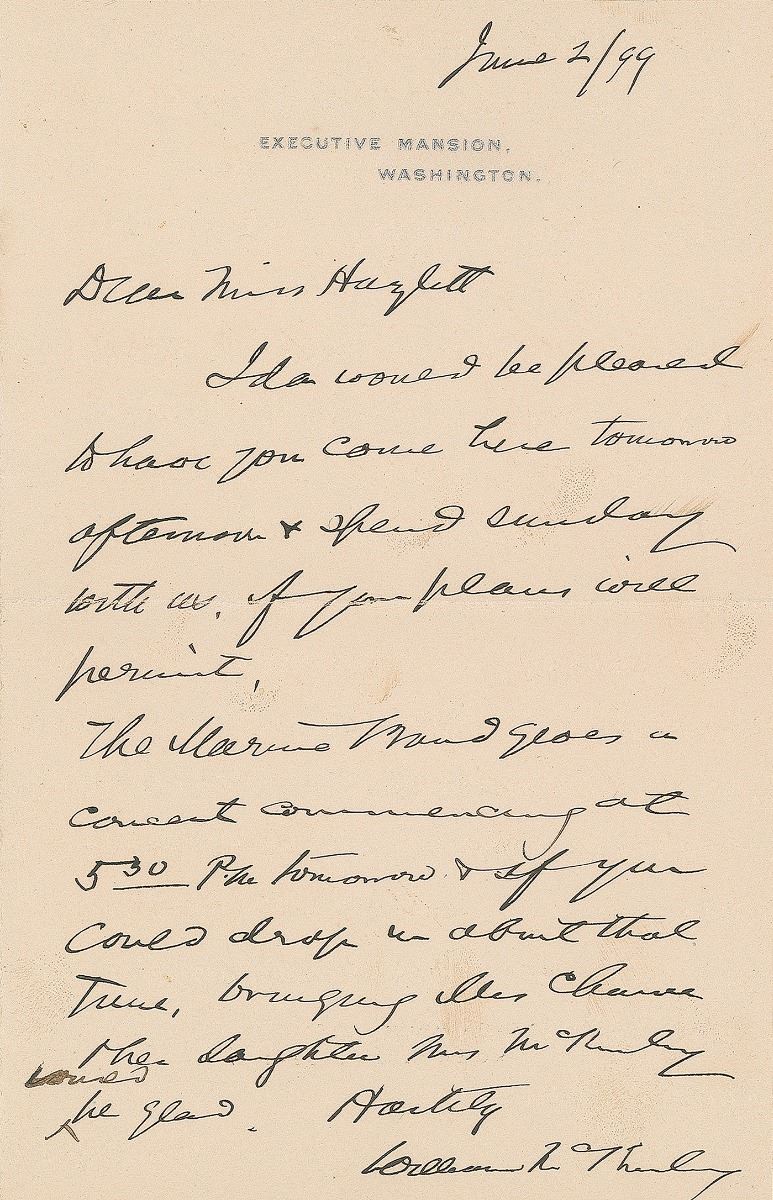 June 2/99
EXECUTIVE MANSION,
WASHINGTON.
Dear Miss Hazlett
Ida would be pleased
to have you come here tomorrow
afternoon & spend sunday
with us, if your plans will
permit,
The Marine Band gives a
concert commencing at
5 30 P.M. tomorrow & if you
could drop in about that
time, bringing Mrs
& her daughter Mrs McKinley
would
be glad. Hastily
William McKinley